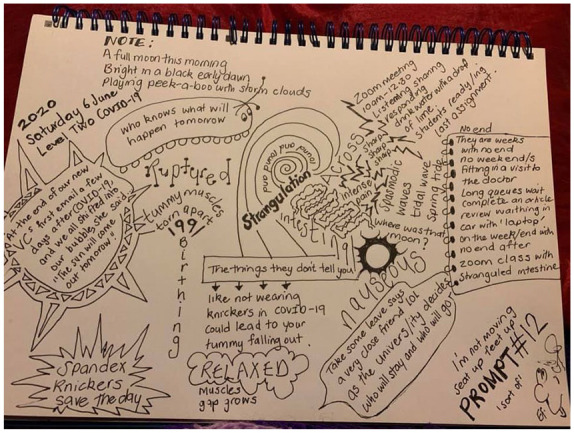 NOTE:
A full moon this morning
Bright in a black early dawn
Playing peek-a-boo with storm clouds
2020
Saturday 6 June
Level Two COVID-19
who knows what will
happen tomorrow
At the end of our new
VC's first email a few
days after COVID-19,
and we all shifted into
our bubbles she said
"The sun will come
out tomorrow".
Ruptured
tummy muscles
torn apart
'99
Birthing
round and round and round
Strangulation
intestine
intense
LOSS
sharp
sharp
sharp
Spasmodic
waves
tidal wave
spring tide
where was that
moon?
Zoom meeting
10am-12.30
Listening sharing
& responding
drink water with a drop
of lime
Students ready/ing
last assignment.
No end
They are weeks
with no end
no week end/s
Fitting in a visit to
the doctor
Long queues wait
complete an article
review waithing in
car with 'laptop'
on the week/end with
no end after
zoom class with
strangled intestine
The things they don't tell you!
like not wearing
knickers in COVID-19
could lead to your
tummy falling out.
nay says
Take some leave says
a very close friend lol
as the univers/ity decides
who will stay and who will go
Spandex
Knickers
save the day
RELAXED
muscles
gap grows
I'm not moving
seat up feet up
PROMPT #12
'sort of'